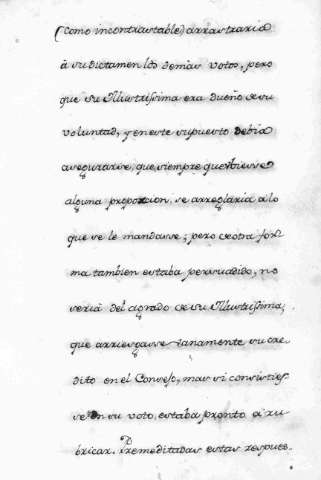 (como incontrastable) arrastraria
à su dictamen los demàs votos, pero
que su Illustrissima era dueño de su
voluntad, y en este supuesto debia
asegurarse, que siempre que hiciesse
alguna proposicion, se arreglaria a lo
que se le mandasse; pero de otra for
ma tambien estaba persuadido, no
seria del agrado de su Illustrissima,
que arriesgasse vanamente su cre
dito en el Consejo, mas si consisties
se en su voto, estaba prompto à ru
bricar. Premeditadas estas respues